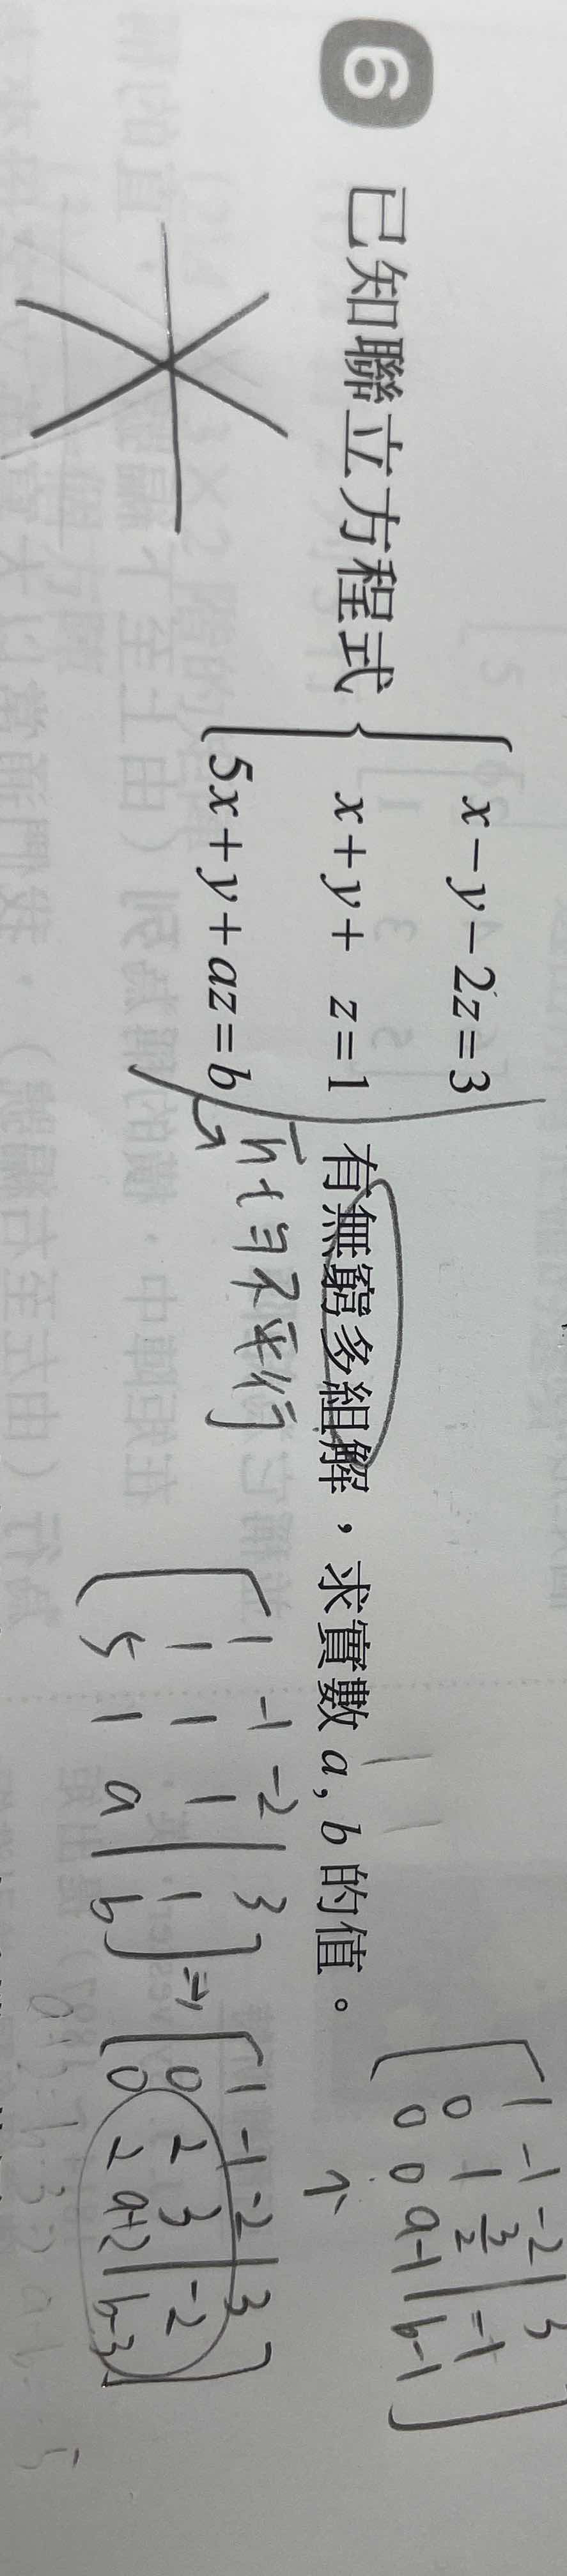 6 已知聯立方程式 { x-y-2z=3
x+y+ z=1
5x+y+az=b
有無窮多組解，求實數 a, b 的值。
不平行
[ 1 -1 -2 | 3
1 1 1 | 1
5 1 a | b ] ⇒
[ 1 -1 -2 | 3
0 2 3 | -2
0 2 a+2 | b-3 ]
[ 1 -1 -2 | 3
0 1 3/2 | -1
0 0 a-1 | b-1 ]